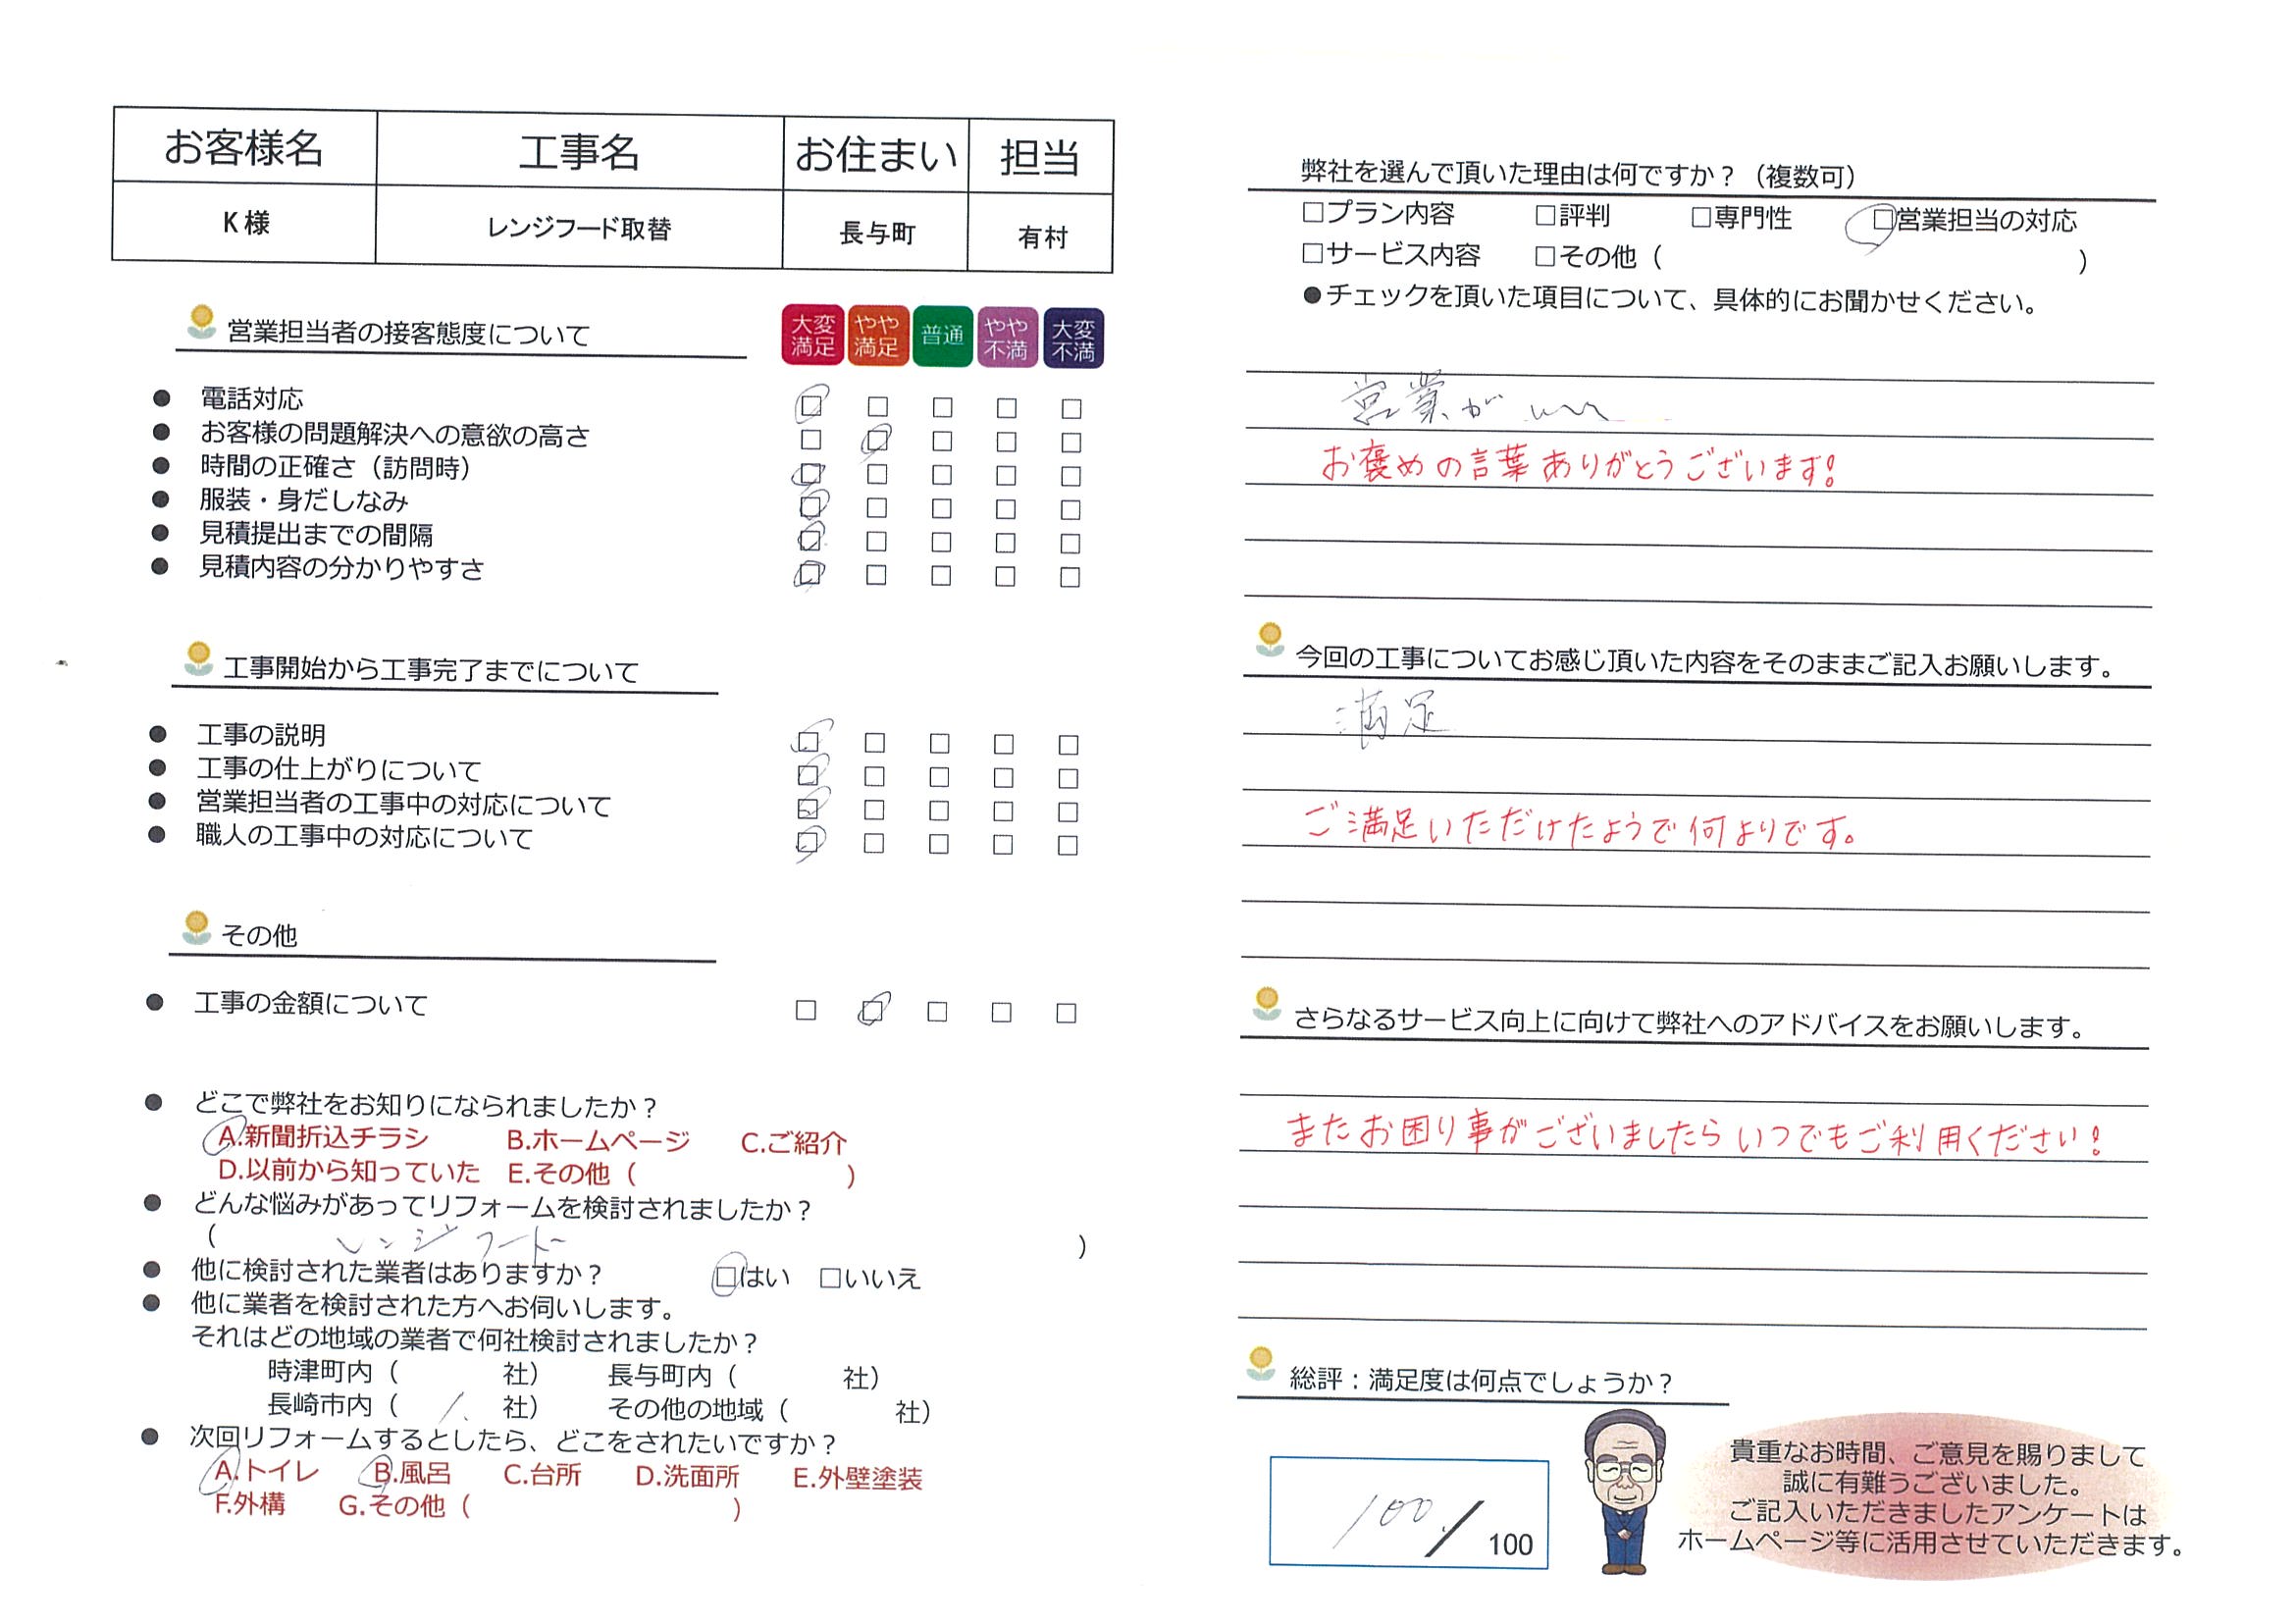 お客様名 工事名 お住まい 担当
K様 レンジフード取替 長与町 有村
営業担当者の接客態度について
大変満足 やや満足 普通 やや不満 大変不満
● 電話対応 □ □ □ □ □
● お客様の問題解決への意欲の高さ □ □ □ □ □
● 時間の正確さ（訪問時） □ □ □ □ □
● 服装・身だしなみ □ □ □ □ □
● 見積提出までの間隔 □ □ □ □ □
● 見積内容の分かりやすさ □ □ □ □ □
工事開始から工事完了までについて
● 工事の説明 □ □ □ □ □
● 工事の仕上がりについて □ □ □ □ □
● 営業担当者の工事中の対応について □ □ □ □ □
● 職人の工事中の対応について □ □ □ □ □
その他
● 工事の金額について □ □ □ □ □
● どこで弊社をお知りになられましたか？
A.新聞折込チラシ B.ホームページ C.ご紹介
D.以前から知っていた E.その他（ ）
● どんな悩みがあってリフォームを検討されましたか？
（ レンジフード ）
● 他に検討された業者はありますか？ □はい □いいえ
● 他に業者を検討された方へお伺いします。
それはどの地域の業者で何社検討されましたか？
時津町内（ 社） 長与町内（ 社）
長崎市内（ 1 社） その他の地域（ 社）
● 次回リフォームするとしたら、どこをされたいですか？
A.トイレ B.風呂 C.台所 D.洗面所 E.外壁塗装
F.外構 G.その他（ ）
弊社を選んで頂いた理由は何ですか？（複数可）
□プラン内容 □評判 □専門性 □営業担当の対応
□サービス内容 □その他（ ）
●チェックを頂いた項目について、具体的にお聞かせください。
営業が
お褒めの言葉ありがとうございます!
今回の工事についてお感じ頂いた内容をそのままご記入お願いします。
満足
ご満足いただけたようで何よりです。
さらなるサービス向上に向けて弊社へのアドバイスをお願いします。
またお困り事がございましたらいつでもご利用ください!
総評：満足度は何点でしょうか？
100/100
貴重なお時間、ご意見を賜りまして
誠に有難うございました。
ご記入いただきましたアンケートは
ホームページ等に活用させていただきます。